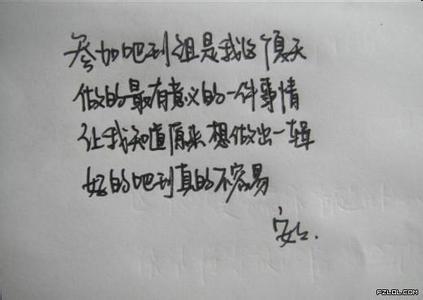 参加吧刊组是我这个夏天
做的最有意义的一件事情
让我知道原来想做出一辑
好的吧刊真的不容易
FZLOL.COM